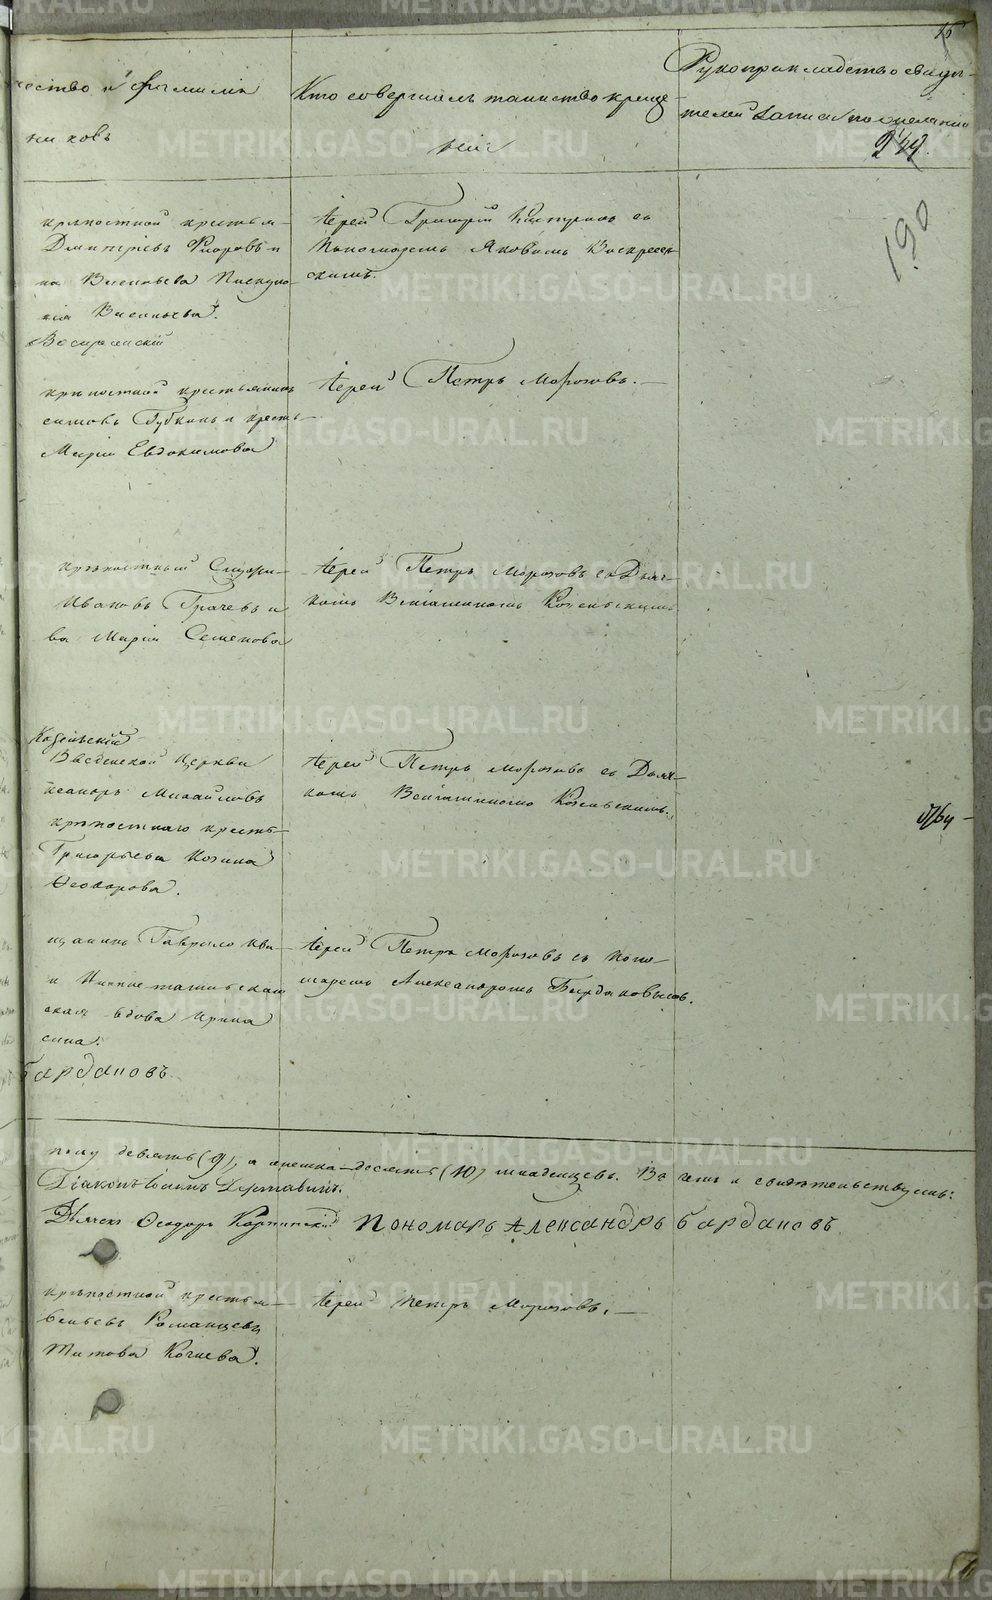 16
чество и фамилія
никовъ
Кто совершилъ таинство креще-
нія
Рукоприкладство свидѣ-
телей записи по желанію
249.
190
крѣпостной крестья-
Дмитріевъ и
на Васильева
Васильева.
Іерей Григорій съ
Пономаремъ Яковомъ Воскресен-
скимъ.
Воскресенскій
крѣпостной крестьянинъ
симовъ Губкинъ и кресть-
Марія Евдокимова
Іерей Петръ Морозовъ.
крѣпостный
Ивановъ Грачевъ и
ва Марія Семенова
Іерей Петръ Морозовъ съ Дьяч-
комъ Веніаминомъ Козельскимъ
Козельскій
Введенской Церкви
Михайловъ
крѣпостнаго кресть-
Григорьева Козина
Ѳеодорова.
Іерей Петръ Морозовъ съ Дьяч-
комъ Веніаминомъ Козельскимъ.
щанинъ Гаврило Ива-
и Нижнетагильская
ская вдова Ирина
сина.
Бардановъ
Іерей Петръ Морозовъ съ Поно-
маремъ Александромъ Бардановымъ.
полу девять (9), а женска десять (10) младенцевъ. Въ чемъ и свидѣтельствуемъ:
Діаконъ Державинъ.
Дьячекъ Ѳеодоръ Карпинскій Пономарь Александръ Бардановъ
крѣпостной крестья-
Романцевъ
Титова Качиева.
Іерей Петръ Морозовъ.
METRIKI.GASO-URAL.RU